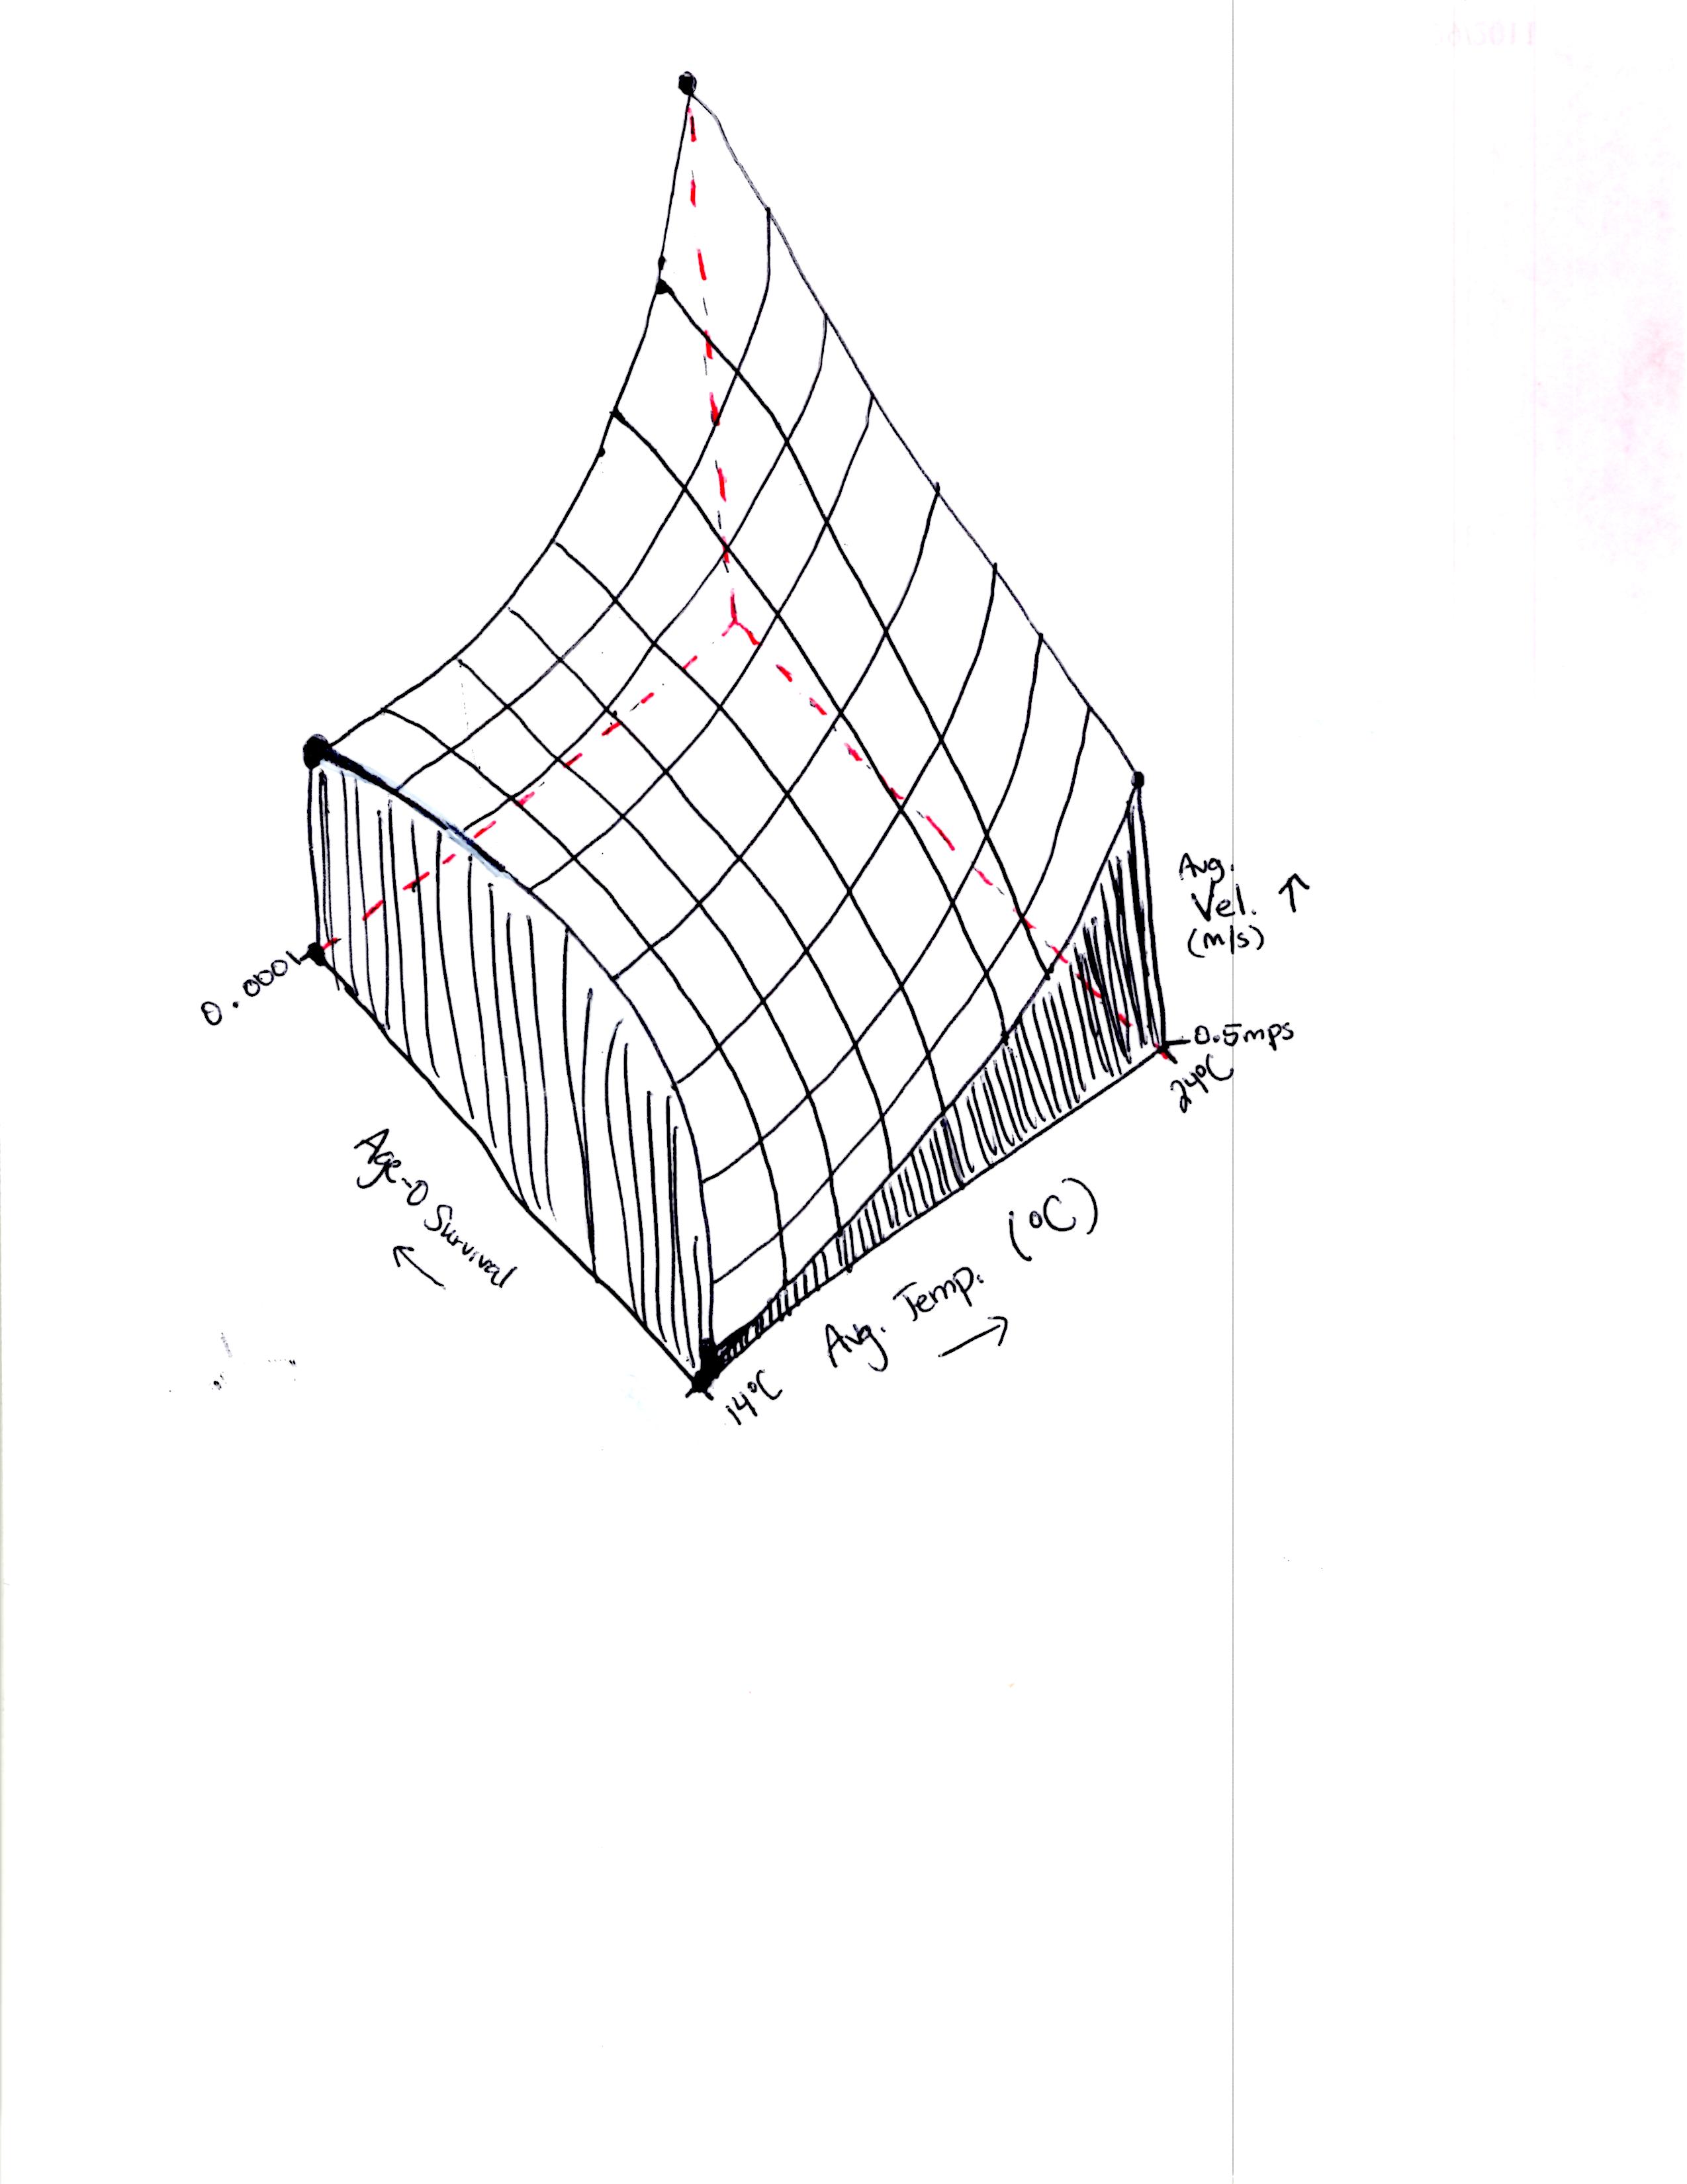 Avg.
Vel. ↑
(m/s)
0.0001
0.5mps
24°C
Age-0 Survival
←
Avg. Temp. (°C)
→
14°C